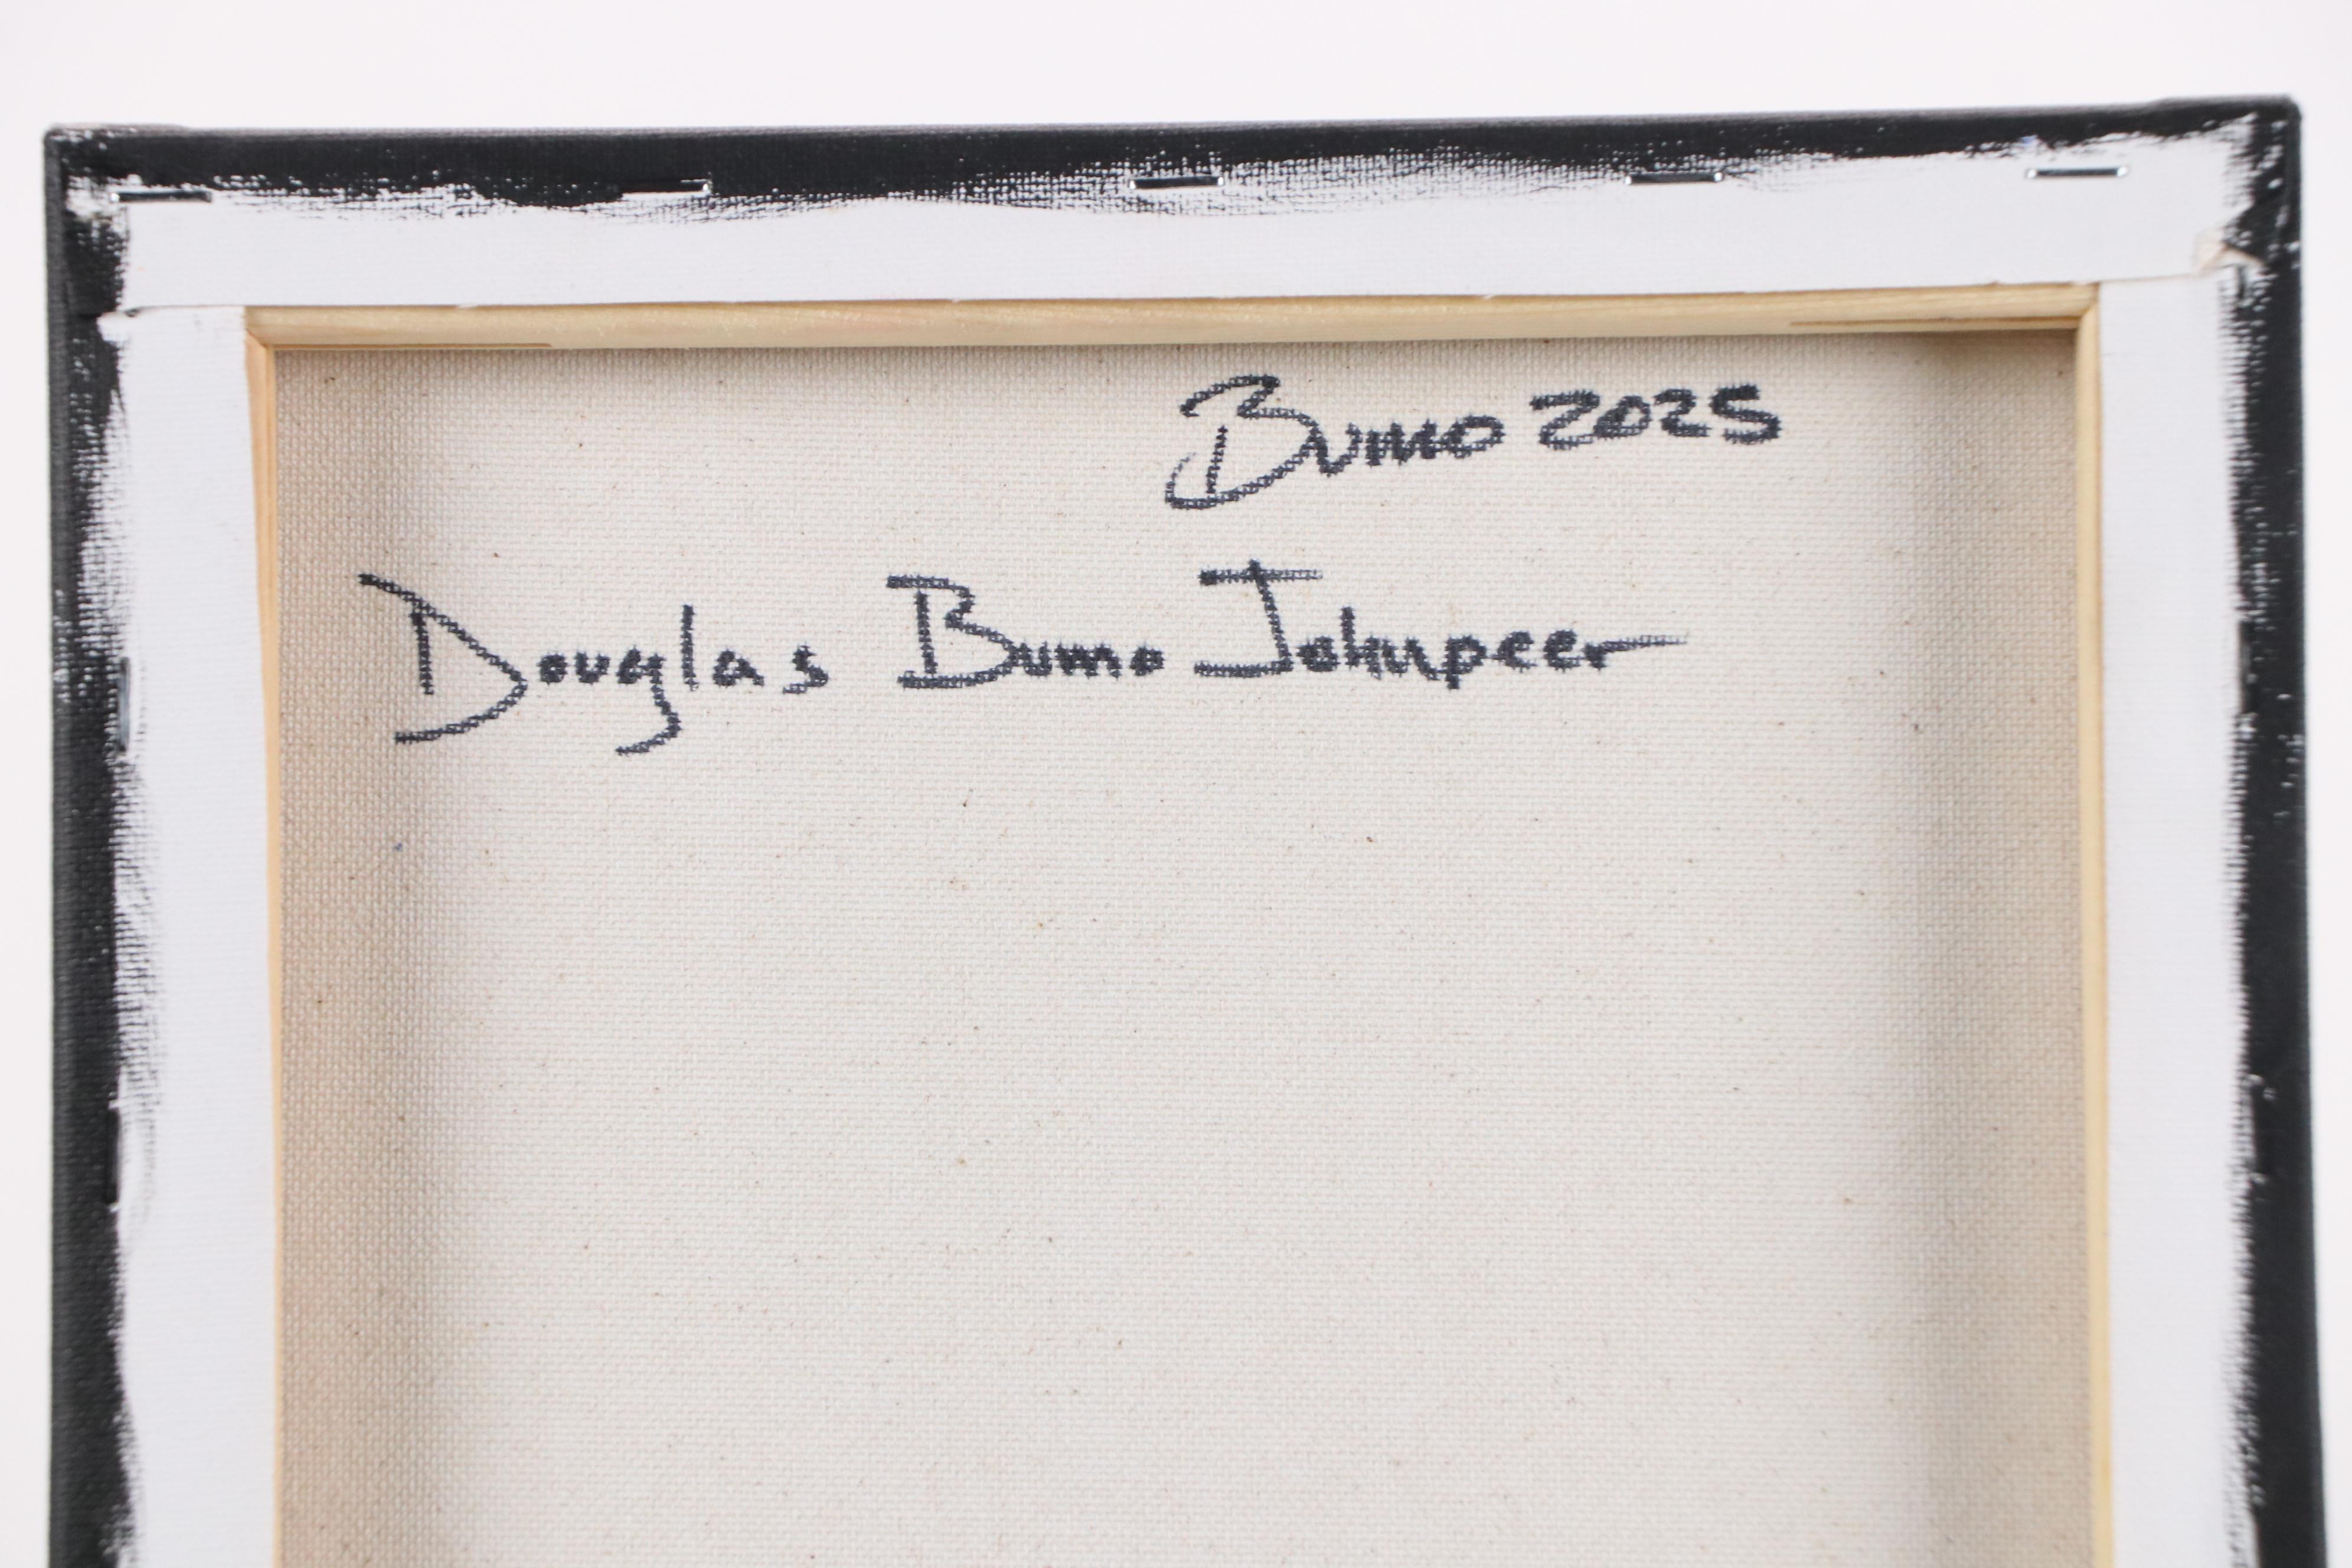 Bumo 2025
Douglas Bumo Johnpeer